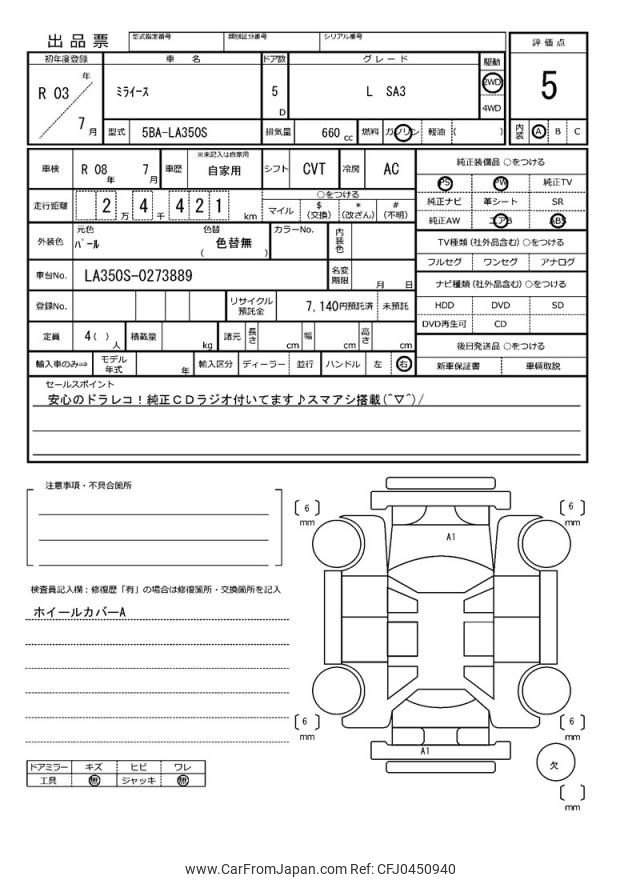 出品票 型式指定番号 類別区分番号 シリアル番号
評価点
初年度登録 車名 ドア数 グレード 駆動
R 03 年 7 月 ミライース 5 D L SA3 2WD 4WD
5
型式 5BA-LA350S 排気量 660 cc 燃料 ガソリン 軽油 ( )
内装 A B C
車検 R 08 年 7 月 車歴 ※未記入は自家用 自家用 シフト CVT 冷房 AC
純正装備品 ○をつける
PS PW 純正TV
走行距離 2 万 4 千 4 2 1 km
○をつける
マイル $ (交換) * (改ざん) # (不明)
純正ナビ 革シート SR
純正AW エアB ABS
外装色 元色 パール 色替 色替無 ( ) カラーNo. 内装色
TV種類 (社外品含む) ○をつける
フルセグ ワンセグ アナログ
車台No. LA350S-0273889 名変期限 月 日
ナビ種類 (社外品含む) ○をつける
登録No. リサイクル預託金 7,140円預託済 未預託
HDD DVD SD
DVD再生可 CD
定員 4( ) 人 積載量 kg 諸元 長さ cm 幅 cm 高さ cm
後日発送品 ○をつける
輸入車のみ⇒ モデル年式 年 輸入区分 ディーラー 並行 ハンドル 左 右
新車保証書 車輌取説
セールスポイント
安心のドラレコ！純正ＣＤラジオ付いてます♪スマアシ搭載(^▽^)/
注意事項・不具合箇所
6 mm
6 mm
A1
検査員記入欄：修復歴「有」の場合は修復箇所・交換箇所を記入
ホイールカバーA
6 mm
6 mm
A1
欠
mm
ドアミラー キズ ヒビ ワレ
工具 無 ジャッキ 無
www.CarFromJapan.com Ref: CFJ0450940